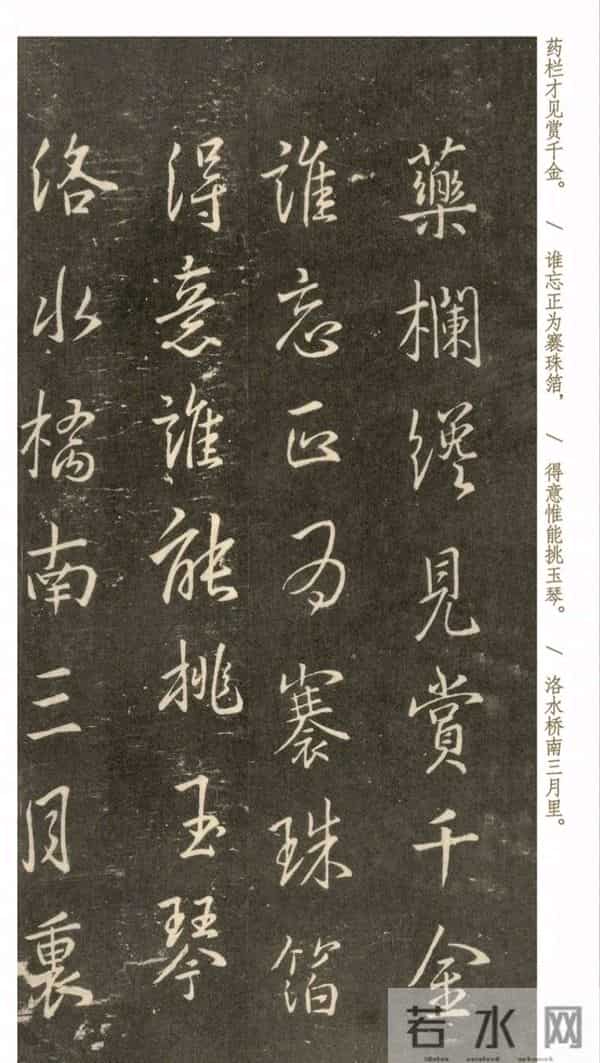 藥欄纔見賞千金
誰忘正為褰珠箔
得意誰能挑玉琴
洛水橋南三月裏
药栏才见赏千金。 / 谁忘正为褰珠箔， / 得意惟能挑玉琴。 / 洛水桥南三月里。
若水网